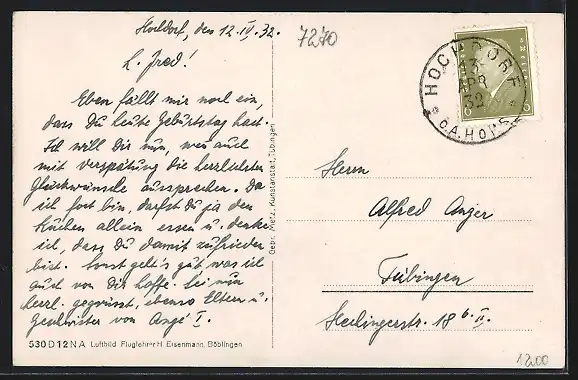 Hochdorf, den 12. IV. 32.
7270
L. Fred!
Eben fällt mir noch ein,
dass Du heute Geburtstag hast.
Ich will Dir nun, wenn auch
mit Verspätung die herzlichsten
Glückwünsche aussprechen. Da
ich fort bin, darfst Du ja den
Kuchen allein essen u. denke
ich, dass Du damit zufrieden
bist. Sonst geht's gut, was ich
auch von Dir hoffe. Sei nun
herzl. gegrüsst, ebenso Eltern u.
Geschwister von
530 D 12 N A Luftbild Fluglehrer H. Eisenmann, Böblingen
Gebr. Metz, Kunstanstalt, Tübingen
HOCHDORF
APR
32
O.A. HORB
6 6
Herrn
Alfred Anger
Tübingen
Hechingerstr. 18 b. II.
1200